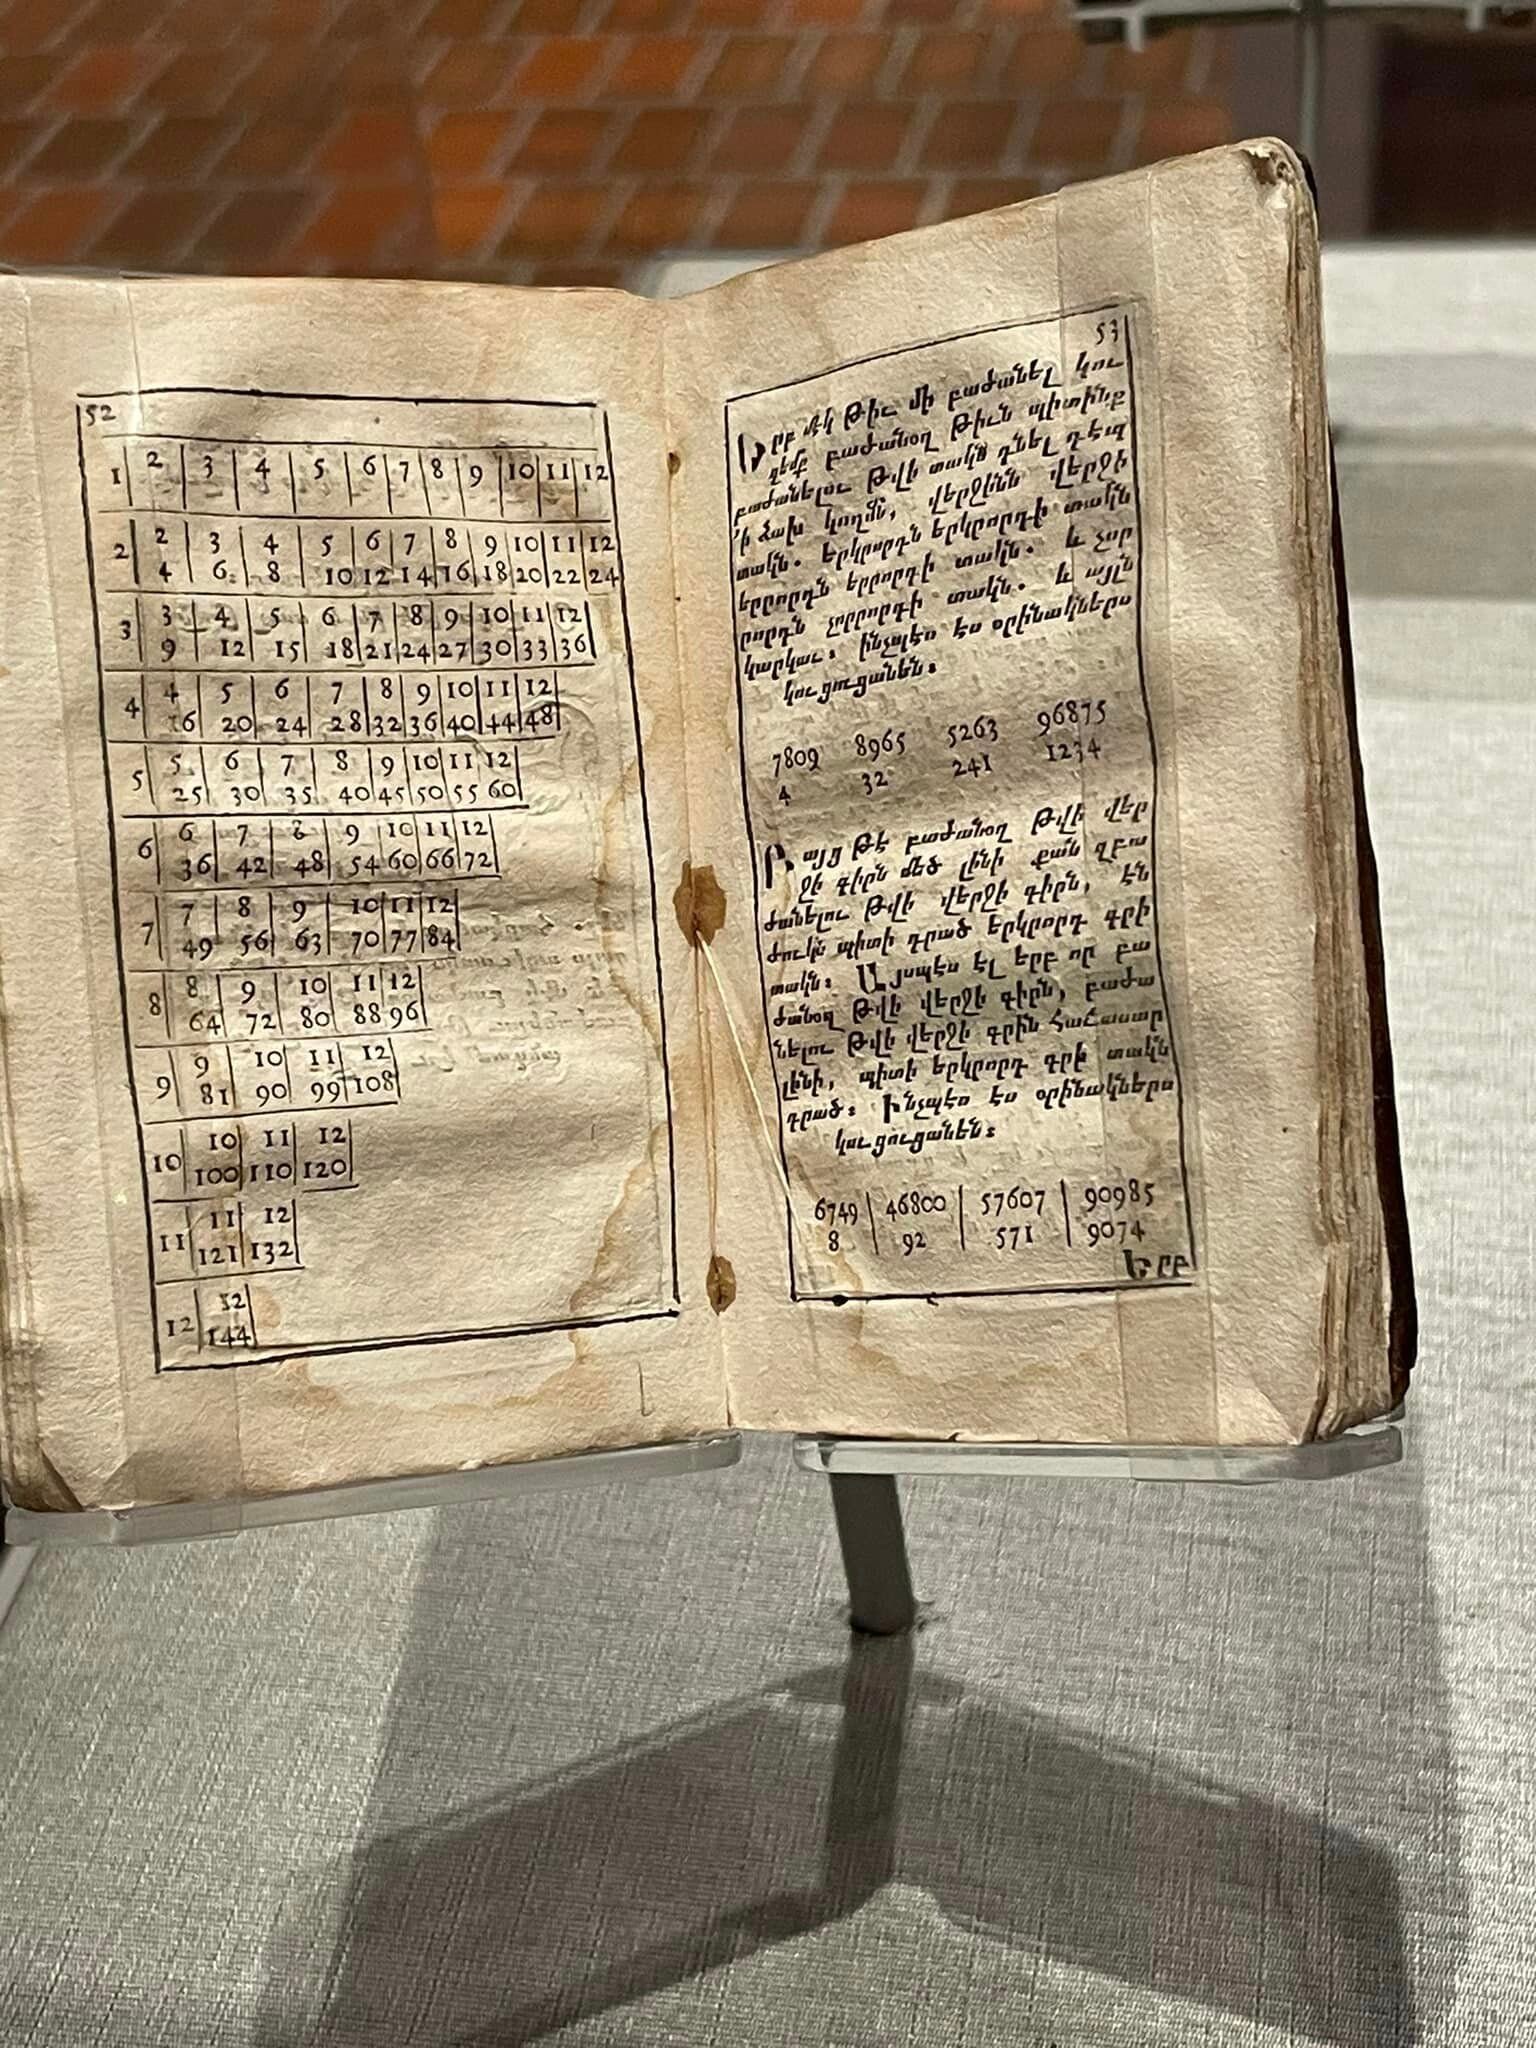 52
1 | 2 | 3 | 4 | 5 | 6 | 7 | 8 | 9 | 10 | 11 | 12
2 | 2 | 3 | 4 | 5 | 6 | 7 | 8 | 9 | 10 | 11 | 12
4 | 6 | 8 | 10 | 12 | 14 | 16 | 18 | 20 | 22 | 24
3 | 3 | 4 | 5 | 6 | 7 | 8 | 9 | 10 | 11 | 12
9 | 12 | 15 | 18 | 21 | 24 | 27 | 30 | 33 | 36
4 | 4 | 5 | 6 | 7 | 8 | 9 | 10 | 11 | 12
16 | 20 | 24 | 28 | 32 | 36 | 40 | 44 | 48
5 | 5 | 6 | 7 | 8 | 9 | 10 | 11 | 12
25 | 30 | 35 | 40 | 45 | 50 | 55 | 60
6 | 6 | 7 | 8 | 9 | 10 | 11 | 12
36 | 42 | 48 | 54 | 60 | 66 | 72
7 | 7 | 8 | 9 | 10 | 11 | 12
49 | 56 | 63 | 70 | 77 | 84
8 | 8 | 9 | 10 | 11 | 12
64 | 72 | 80 | 88 | 96
9 | 9 | 10 | 11 | 12
81 | 90 | 99 | 108
10 | 10 | 11 | 12
100 | 110 | 120
11 | 11 | 12
121 | 132
12 | 12
144
53
Երբ մէկ թիւ մի բաժանել կու
զեմք բաժանօղ թիւն պիտինք
բաժանելու թվի տակը դնել դէպ
՚ի ձախ կողմն, վերջինն վերջի
տակն. երկրորդն երկրորդի տակն
երրորդն երրորդի տակն. և չոր
րորդն չորրորդի տակն. և այլն
կարկաւ։ ինչպէս էս օրինակներս
կու ցուցանեն։
7809 8965 5263 96875
4 32 241 1234
Բայց թէ բաժանօղ թվի վեր
ջի գիրն մեծ լինի քան զբա
ժանելու թվի վերջի գիրն, էն
ժուկն պիտի դրած երկրորդ գրի
տակն։ Այսպէս էլ երբ որ բա
ժանօղ թվի վերջի գիրն, բաժա
նելու թվի վերջի գրին հաւասար
լինի, պիտի երկրորդ գրի տակն
դրած։ Ինչպէս էս օրինակներս
կու ցուցանեն։
6749 | 46800 | 57607 | 90985
8 | 92 | 571 | 9074
Երբ